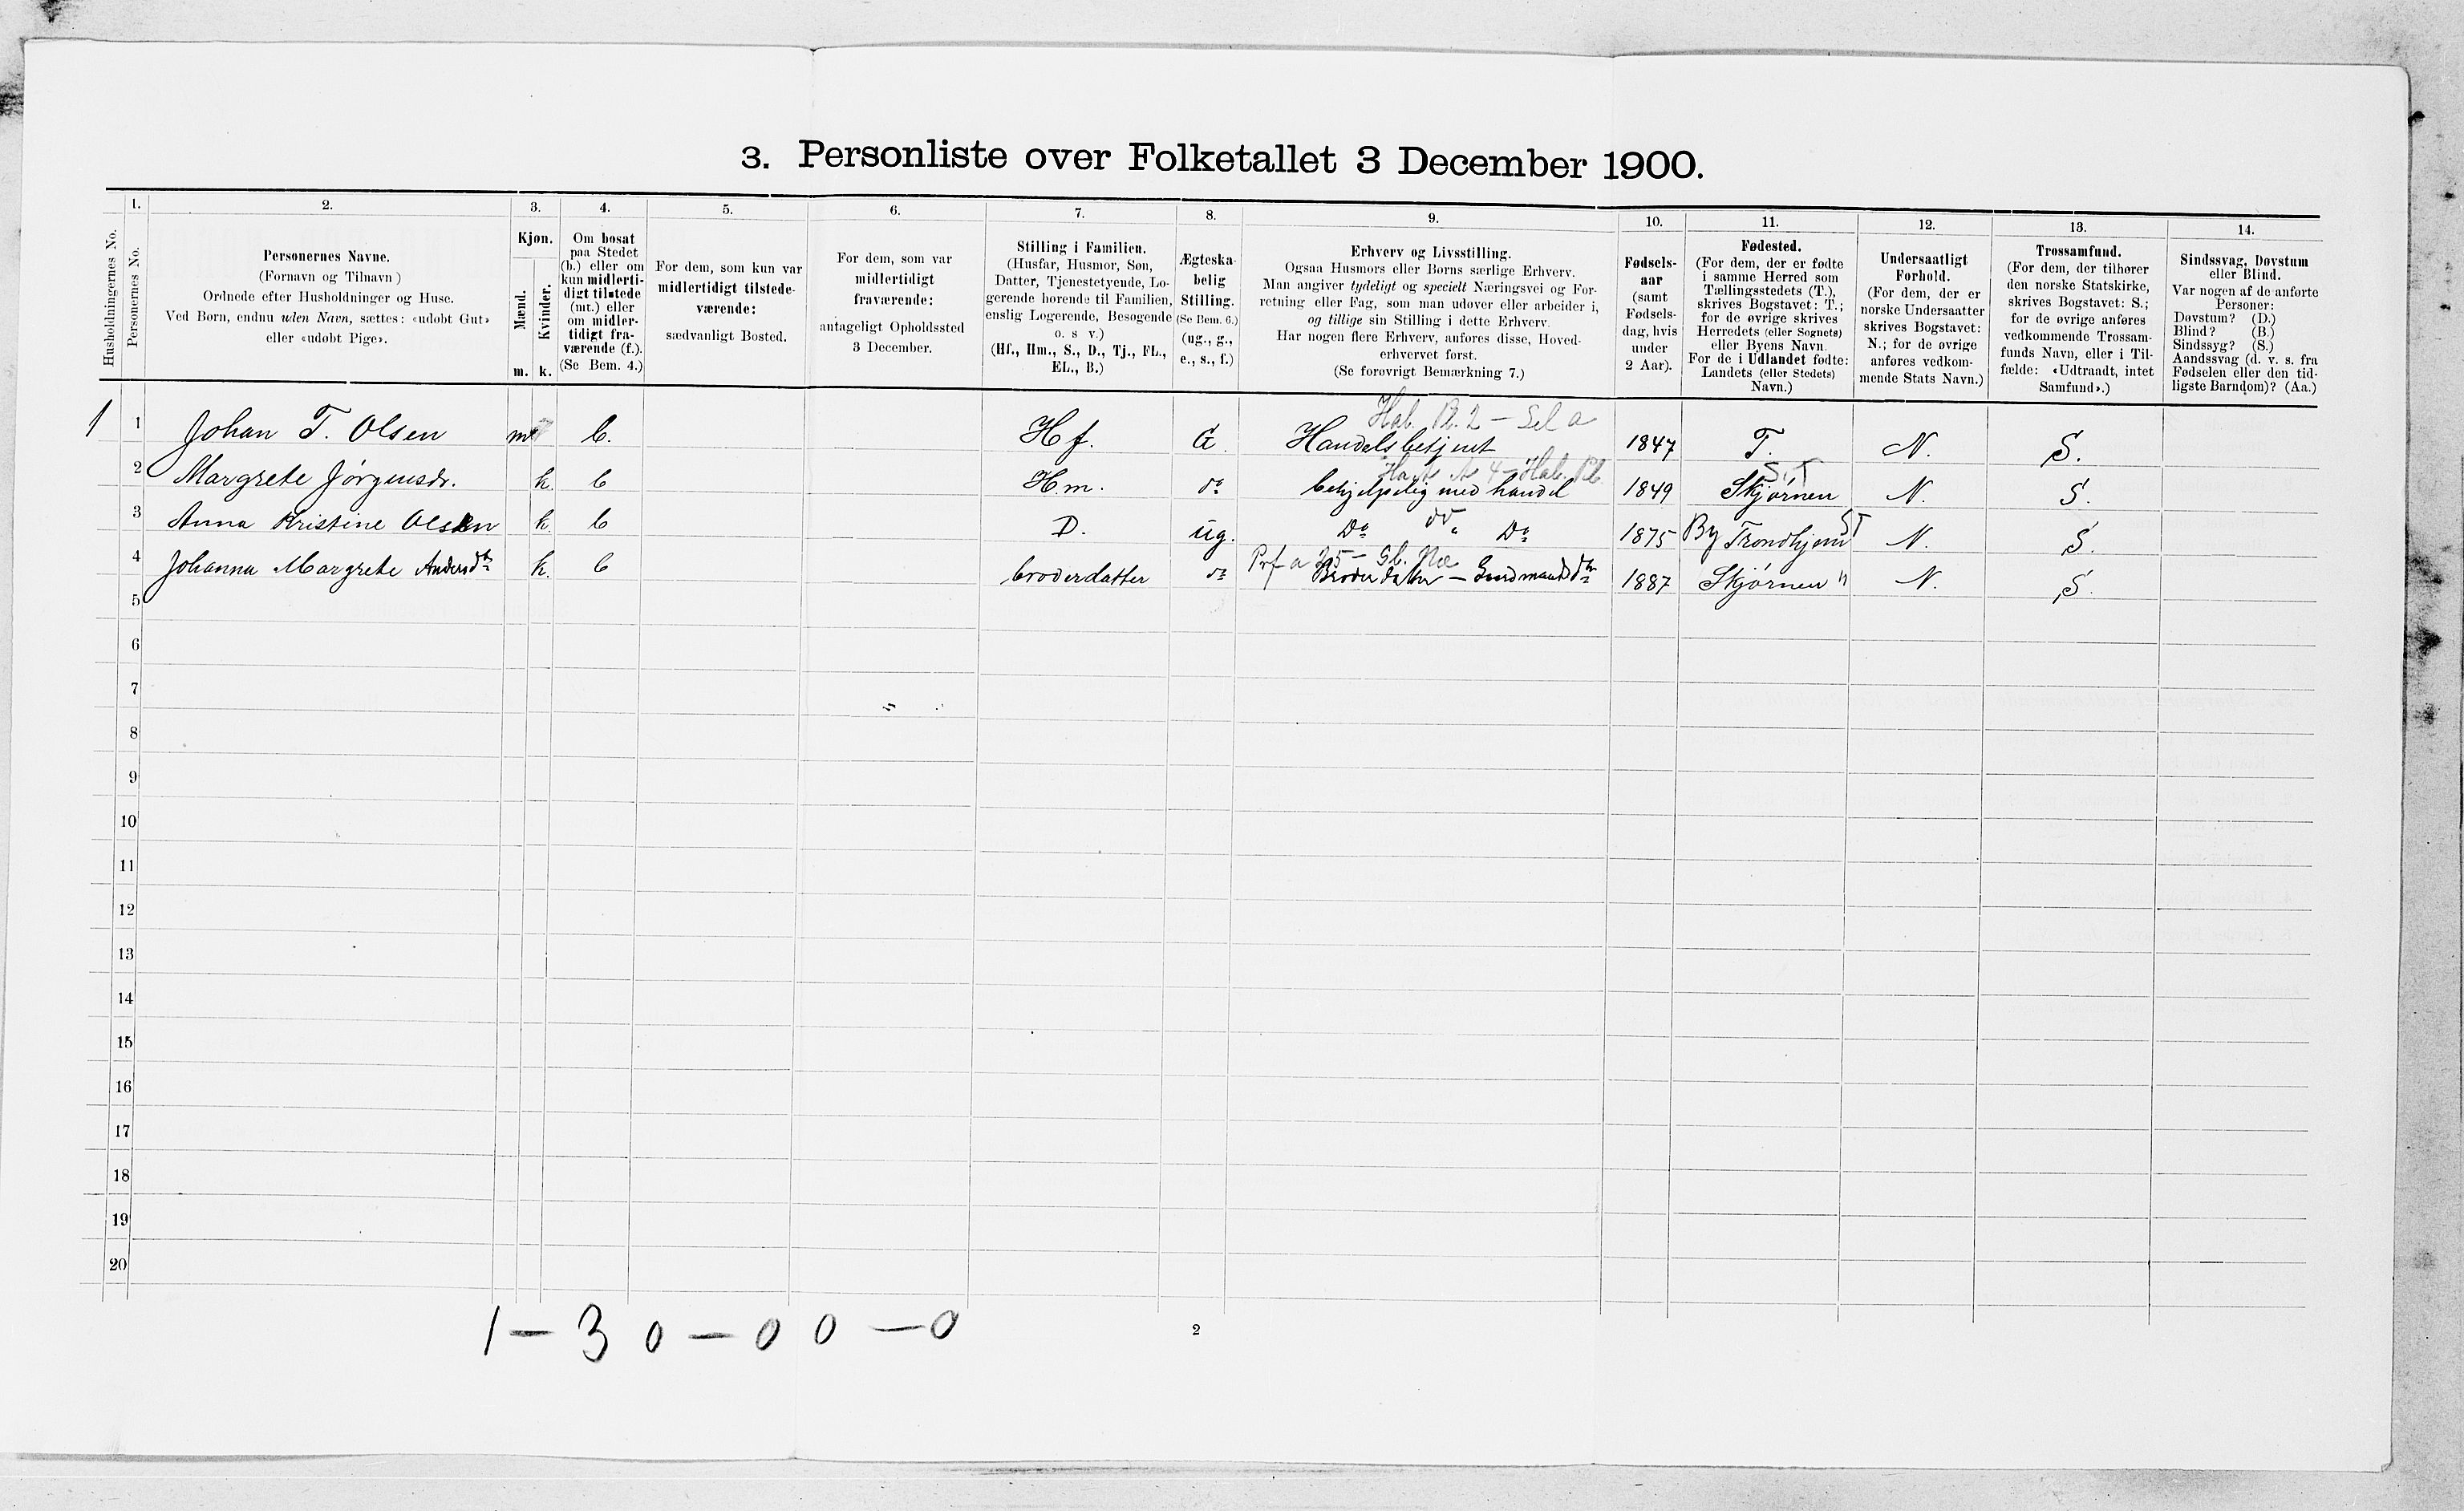 3. Personliste over Folketallet 3 December 1900.
1. 2. 3. 4. 5. 6. 7. 8. 9. 10. 11. 12. 13. 14.
Husholdningernes No.
Personernes No.
Personernes Navne.
(Fornavn og Tilnavn)
Ordnede efter Husholdninger og Huse.
Ved Børn, endnu uden Navn, sættes: «udøbt Gut»
eller «udøbt Pige».
Kjøn.
Mænd.
Kvinder.
m. k.
Om bosat
paa Stedet
(b.) eller om
kun midlerti-
digt tilstede
(mt.) eller
om midler-
tidigt fra-
værende (f.).
(Se Bem. 4.)
For dem, som kun var
midlertidigt tilstede-
værende:
sædvanligt Bosted.
For dem, som var
midlertidigt
fraværende:
antageligt Opholdssted
3 December.
Stilling i Familien.
(Husfar, Husmor, Søn,
Datter, Tjenestetyende, Lo-
gerende hørende til Familien,
enslig Logerende, Besøgende
o. s v.)
(Hf., Hm., S., D., Tj., FL.,
EL., B.)
Ægteska-
belig
Stilling.
(Se Bem. 6.)
(ug., g.,
e., s., f.)
Erhverv og Livsstilling.
Ogsaa Husmors eller Børns særlige Erhverv.
Man angiver tydeligt og specielt Næringsvei og For-
retning eller Fag, som man udøver eller arbeider i,
og tillige sin Stilling i dette Erhverv.
Har nogen flere Erhverv, anføres disse, Hoved-
erhvervet først.
(Se forøvrigt Bemærkning 7.)
Fødsels-
aar
(samt
Fødsels-
dag, hvis
under
2 Aar).
Fødested.
(For dem, der er fødte
i samme Herred som
Tællingsstedets (T.),
skrives Bogstavet: T.;
for de øvrige skrives
Herredets (eller Sognets)
eller Byens Navn.
For de i Udlandet fødte:
Landets (eller Stedets)
Navn.)
Undersaatligt
Forhold.
(For dem, der er
norske Undersaatter
skrives Bogstavet:
N.; for de øvrige
anføres vedkom-
mende Stats Navn.)
Trossamfund.
(For dem, der tilhører
den norske Statskirke,
skrives Bogstavet: S.;
for de øvrige anføres
vedkommende Trossam-
funds Navn, eller i Til-
fælde: «Udtraadt, intet
Samfund».)
Sindssvag, Døvstum
eller Blind.
Var nogen af de anførte
Personer:
Døvstum? (D.)
Blind? (B.)
Sindssyg? (S.)
Aandssvag (d. v. s. fra
Fødselen eller den tid-
ligste Barndom)? (Aa.)
1 1 Johan T. Olsen m b. Hf. G. Handelsbetjent 1847 T. N. S.
2 Margrete Jørgensdr. k. b Hm. do behjelpelig med handel 1849 Skjørnen S.T N. S.
3 Anna Kristine Olsen k. b D. ug. Do Do 1875 By Trondhjem ST N. S.
4 Johanna Margrete Andersdtr k. b broderdatter do Broderdatter — Gaardmandsdtr 1887 Skjørnen " N. S.
5
6
7
8
9
10
11
12
13
14
15
16
17
18
19
20
1 — 3 0 — 0 0 — 0
2